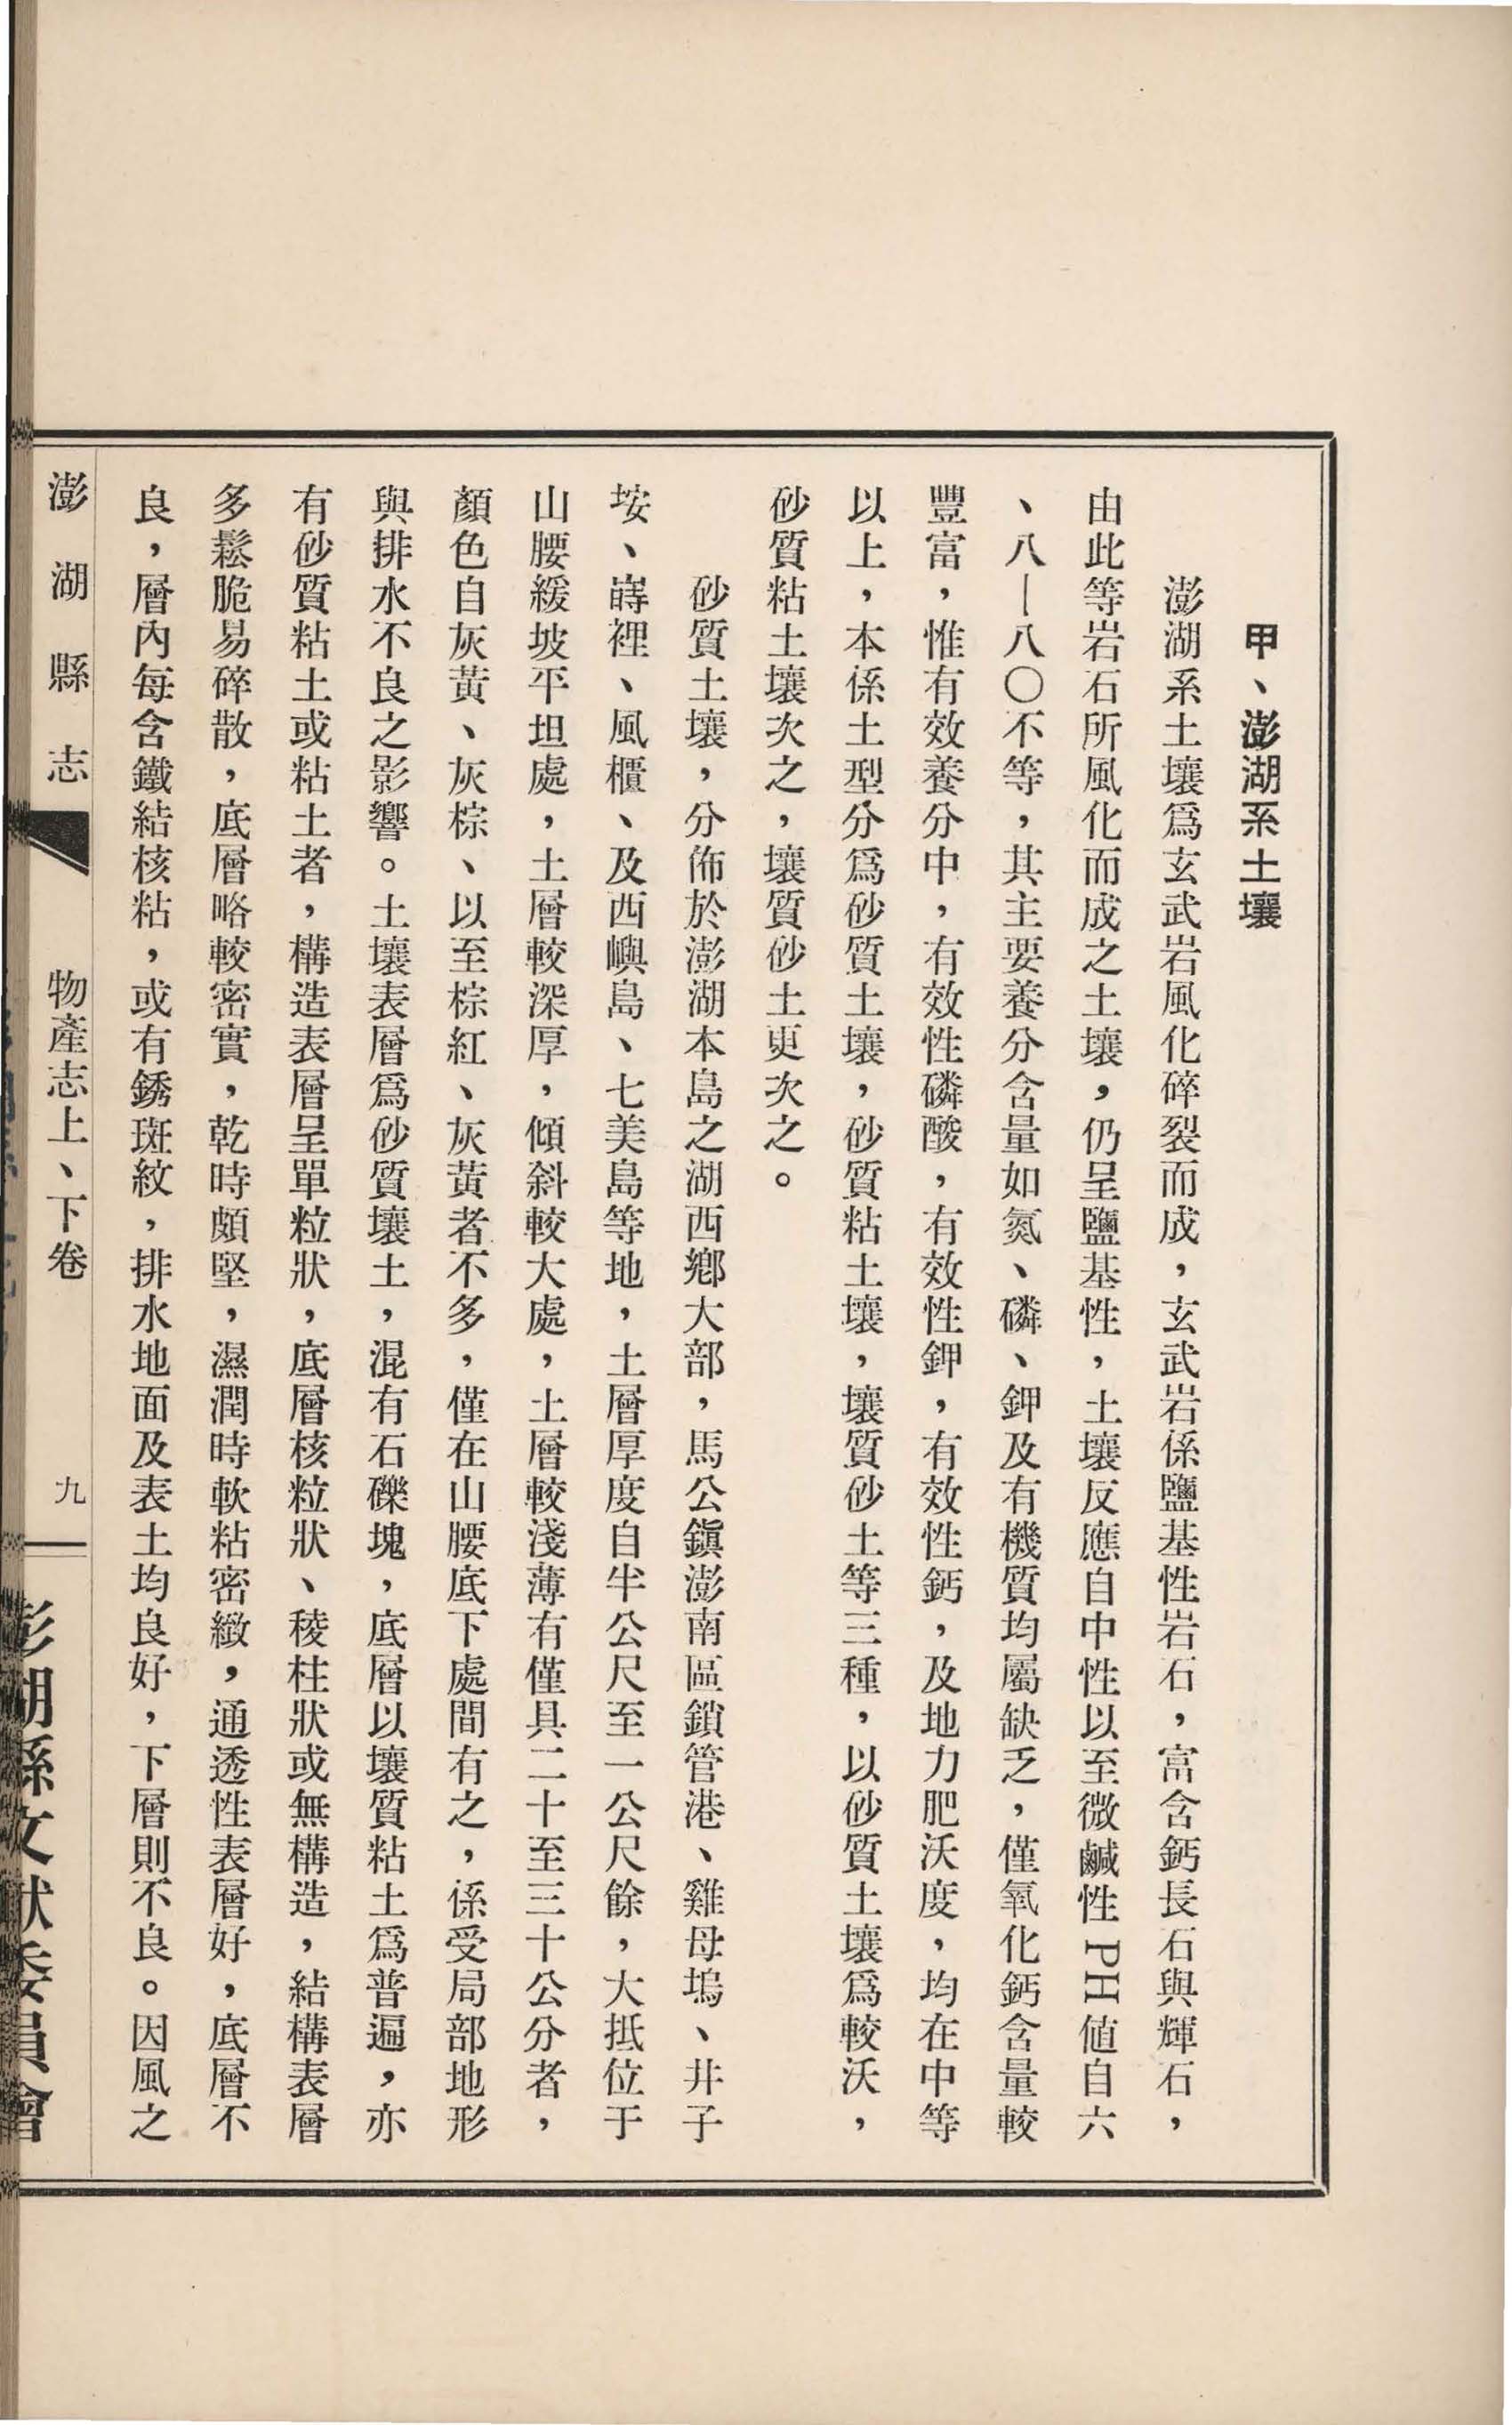 甲、澎湖系土壤
澎湖系土壤爲玄武岩風化碎裂而成，玄武岩係鹽基性岩石，富含鈣長石與輝石，
由此等岩石所風化而成之土壤，仍呈鹽基性，土壤反應自中性以至微鹹性PH値自六
、八—八〇不等，其主要養分含量如氮、磷、鉀及有機質均屬缺乏，僅氧化鈣含量較
豐富，惟有效養分中，有效性磷酸，有效性鉀，有效性鈣，及地力肥沃度，均在中等
以上，本係土型分爲砂質土壤，砂質粘土壤，壤質砂土等三種，以砂質土壤爲較沃，
砂質粘土壤次之，壤質砂土更次之。
砂質土壤，分佈於澎湖本島之湖西鄉大部，馬公鎭澎南區鎖管港、雞母塢、井子
垵、嵵裡、風櫃、及西嶼島、七美島等地，土層厚度自半公尺至一公尺餘，大抵位于
山腰緩坡平坦處，土層較深厚，傾斜較大處，土層較淺薄有僅具二十至三十公分者，
顏色自灰黃、灰棕、以至棕紅、灰黃者不多，僅在山腰底下處間有之，係受局部地形
與排水不良之影響。土壤表層爲砂質壤土，混有石礫塊，底層以壤質粘土爲普遍，亦
有砂質粘土或粘土者，構造表層呈單粒狀，底層核粒狀、稜柱狀或無構造，結構表層
多鬆脆易碎散，底層略較密實，乾時頗堅，濕潤時軟粘密緻，通透性表層好，底層不
良，層內每含鐵結核粘，或有銹斑紋，排水地面及表土均良好，下層則不良。因風之
澎湖縣志　物產志上、下卷　九
澎湖縣文獻委員會